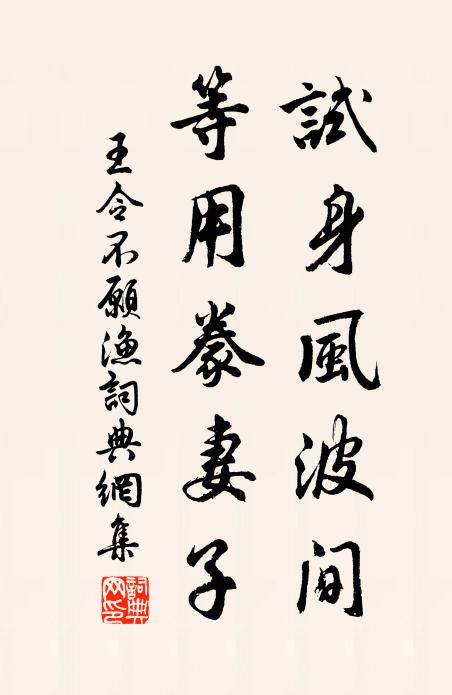 試身風波間
等用豢妻子
王令不願漁詞典網集
詞典网印